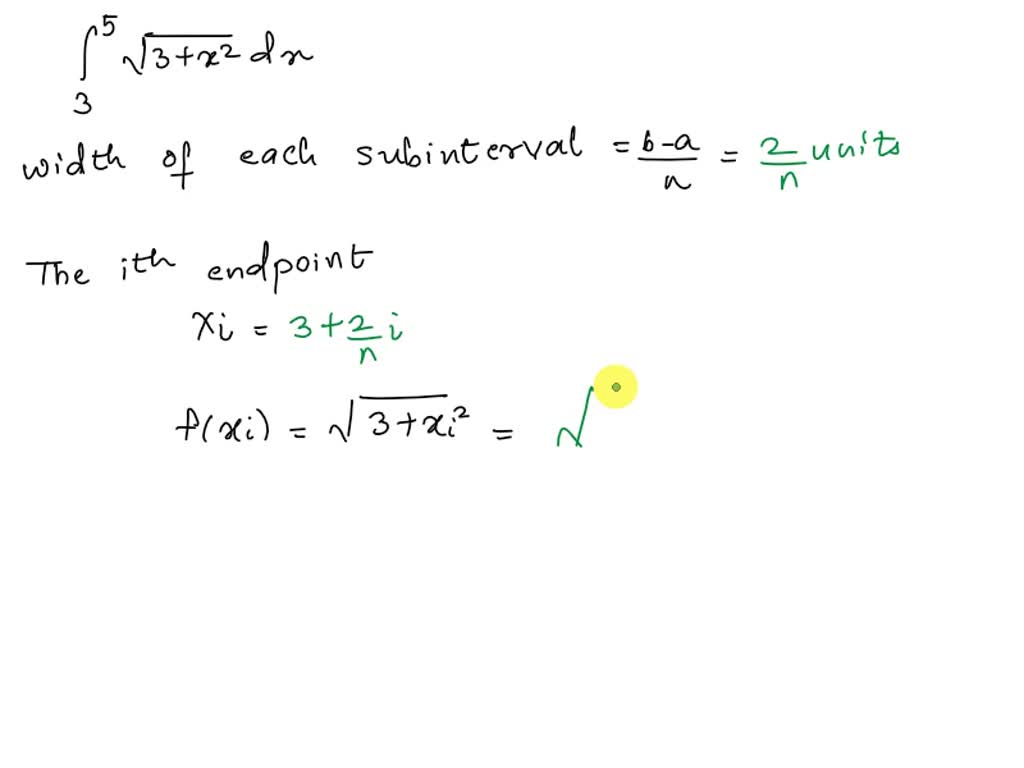 ∫₃⁵ √(3+x²) dx
width of each subinterval = (b-a)/n = 2/n units
The ith endpoint
xi = 3+2/n i
f(xi) = √(3+xi²) = √